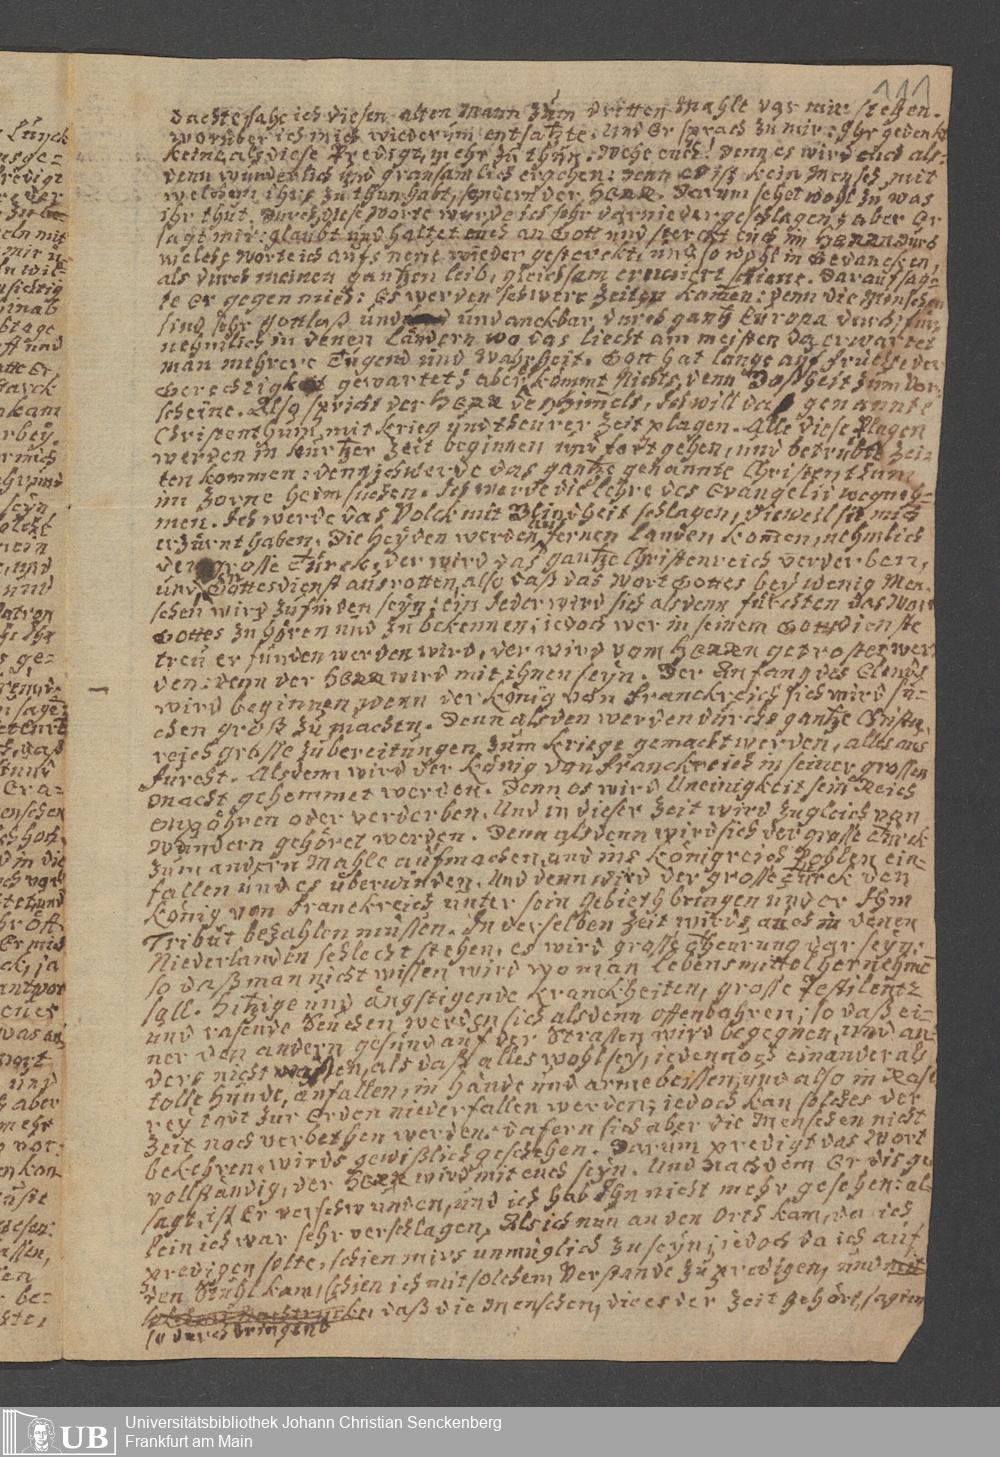 111
dachte sahe ich diesen alten Mann zum dritten Mahle vor mir stehen.
worüber ich mich wiederum entsatzte: Und Er sprach zu mir: Ihr gedenkt
keine als diese Predigt mehr zu thun: Wehe euch! denn es wird euch als-
denn wunderlich und gransamlich ergehen: denn es ist kein Mensch, mit
welchem ihrs zu thun habt, sondern der HErr. Darum sehet wohl zu was
ihr thut. Durch diese Worte wurde ich sehr darniedergeschlagen; aber Er
sagt mir: glaubt und haltet euch an Gott und sterckt euch im HErrn durch
welche Worte ich aufs neue wieder gesterckt, und so wohl in Gedancken,
als durch meinen gantzen leib, gleichsam erneuert schiene. Darauf sag-
te Er gegen mich: Es werden schwere Zeiten kom̄en: denn die Menschen
sind sehr gottloß und undanckbar durch gantz Europa durch, für-
nehmlich in denen Ländern wo das liecht am meisten da erwartet
man mehrere Tugend und Wahrheit. Gott hat lange auf früchte der
Gerechtigkeit gewartet; aber kommt Nichts, denn Boßheit zum Vor-
scheine. Also spricht der HErr des Him̄els, Ich will das genannte
Christenthum mit krieg und theurer Zeit plagen. Alle diese Plagen
werden in kurtzer Zeit beginnen und fortgehen, und betrübte Zei-
ten kommen: denn ich werde das gantze genannte Christenthum
im Zorne heimsuchen. Ich werde die lehre des Evangelii wegneh-
men. Ich werde das Volck mit Blindheit schlagen, dieweil sie mich
erzürnt haben. Die Heyden werden aus fernen landen kom̄en, nehmlich
der grosse Türck, der wird das gantze Christenreich verderben,
und Gottesdienst ausrotten, also daß das Wort Gottes bey wenig Men-
schen wird zu finden seyn; ein Jeder wird sich alsdenn fürchten das Wort
Gottes zu hören und zu bekennen; iedoch wer in seinem Gottsdienste
treu erfunden werden wird, der wird vom HErrn getröstet wer-
den: denn der HErr wird mit ihnen seyn. Der Anfang des Elends
wird beginnen, wenn der könig von franckreich sich wird su-
chen groß zu machen. Denn alsden werden durchs gantze Christen-
reich grosse zubereitungen zum kriege gemacht werden, alles aus
furcht. Alsdenn wird der könig von franckreich in seiner grossen
macht gehemmet werden. Denn es wird Uneinigkeit sein Reich
empöhren oder verderben. Und in dieser Zeit wird zugleich von
Wundern gehöret werden. Denn alsdenn wird sich der grosse Türck
zum andern Mahle aufmachen, und ins königreich Pohlen ein-
fallen und es überwinden. Und denn wird der grosse Türck den
könig von franckreich unter sein gebieth bringen und er Ihm
Tribut bezahlen müssen. In derselben Zeit wirds auch in denen
Niederlanden schlecht stehen, es wird grosse theurung dar seyn:
so daß man nicht wissen wird wo man lebensmittel hernehmē
soll. Hitzige und ängstigende kranckheiten, grosse Pestilentz
und rasende Seuchen werden sich alsdenn offenbahren; so daß ei-
ner den andern gesund auf der Strassen wird begegnen, und an-
ders nicht als daß alles wohl sey, iedennoch einander als
tolle hunde, anfallen, in hände und arme beissen, und also in Rase-
rey todt zur Erden niederfallen werden; iedoch kan solches der
Zeit noch verbethen werden. dafern sich aber die Menschen nicht
bekehren, wirds gewißlich geschehen. Darum predigt das Wort
vollständig, der HErr wird mit euch seyn. Und nachdem Er dis ge-
sagt, ist Er verschwunden, und ich hab Ihn nicht mehr gesehen: al-
lein ich war sehr verschlagen. Als ich nun an den Orth kam, da ich
predigen solte, schien mirs unmüglich zu seyn; iedoch da ich auf
den Stuhl kam, schien ich mit solchem Verstande zu predigen, und mit
daß die Menschen, die es der Zeit gehört, sagten
so durchdringend
UB
Universitätsbibliothek Johann Christian Senckenberg
Frankfurt am Main